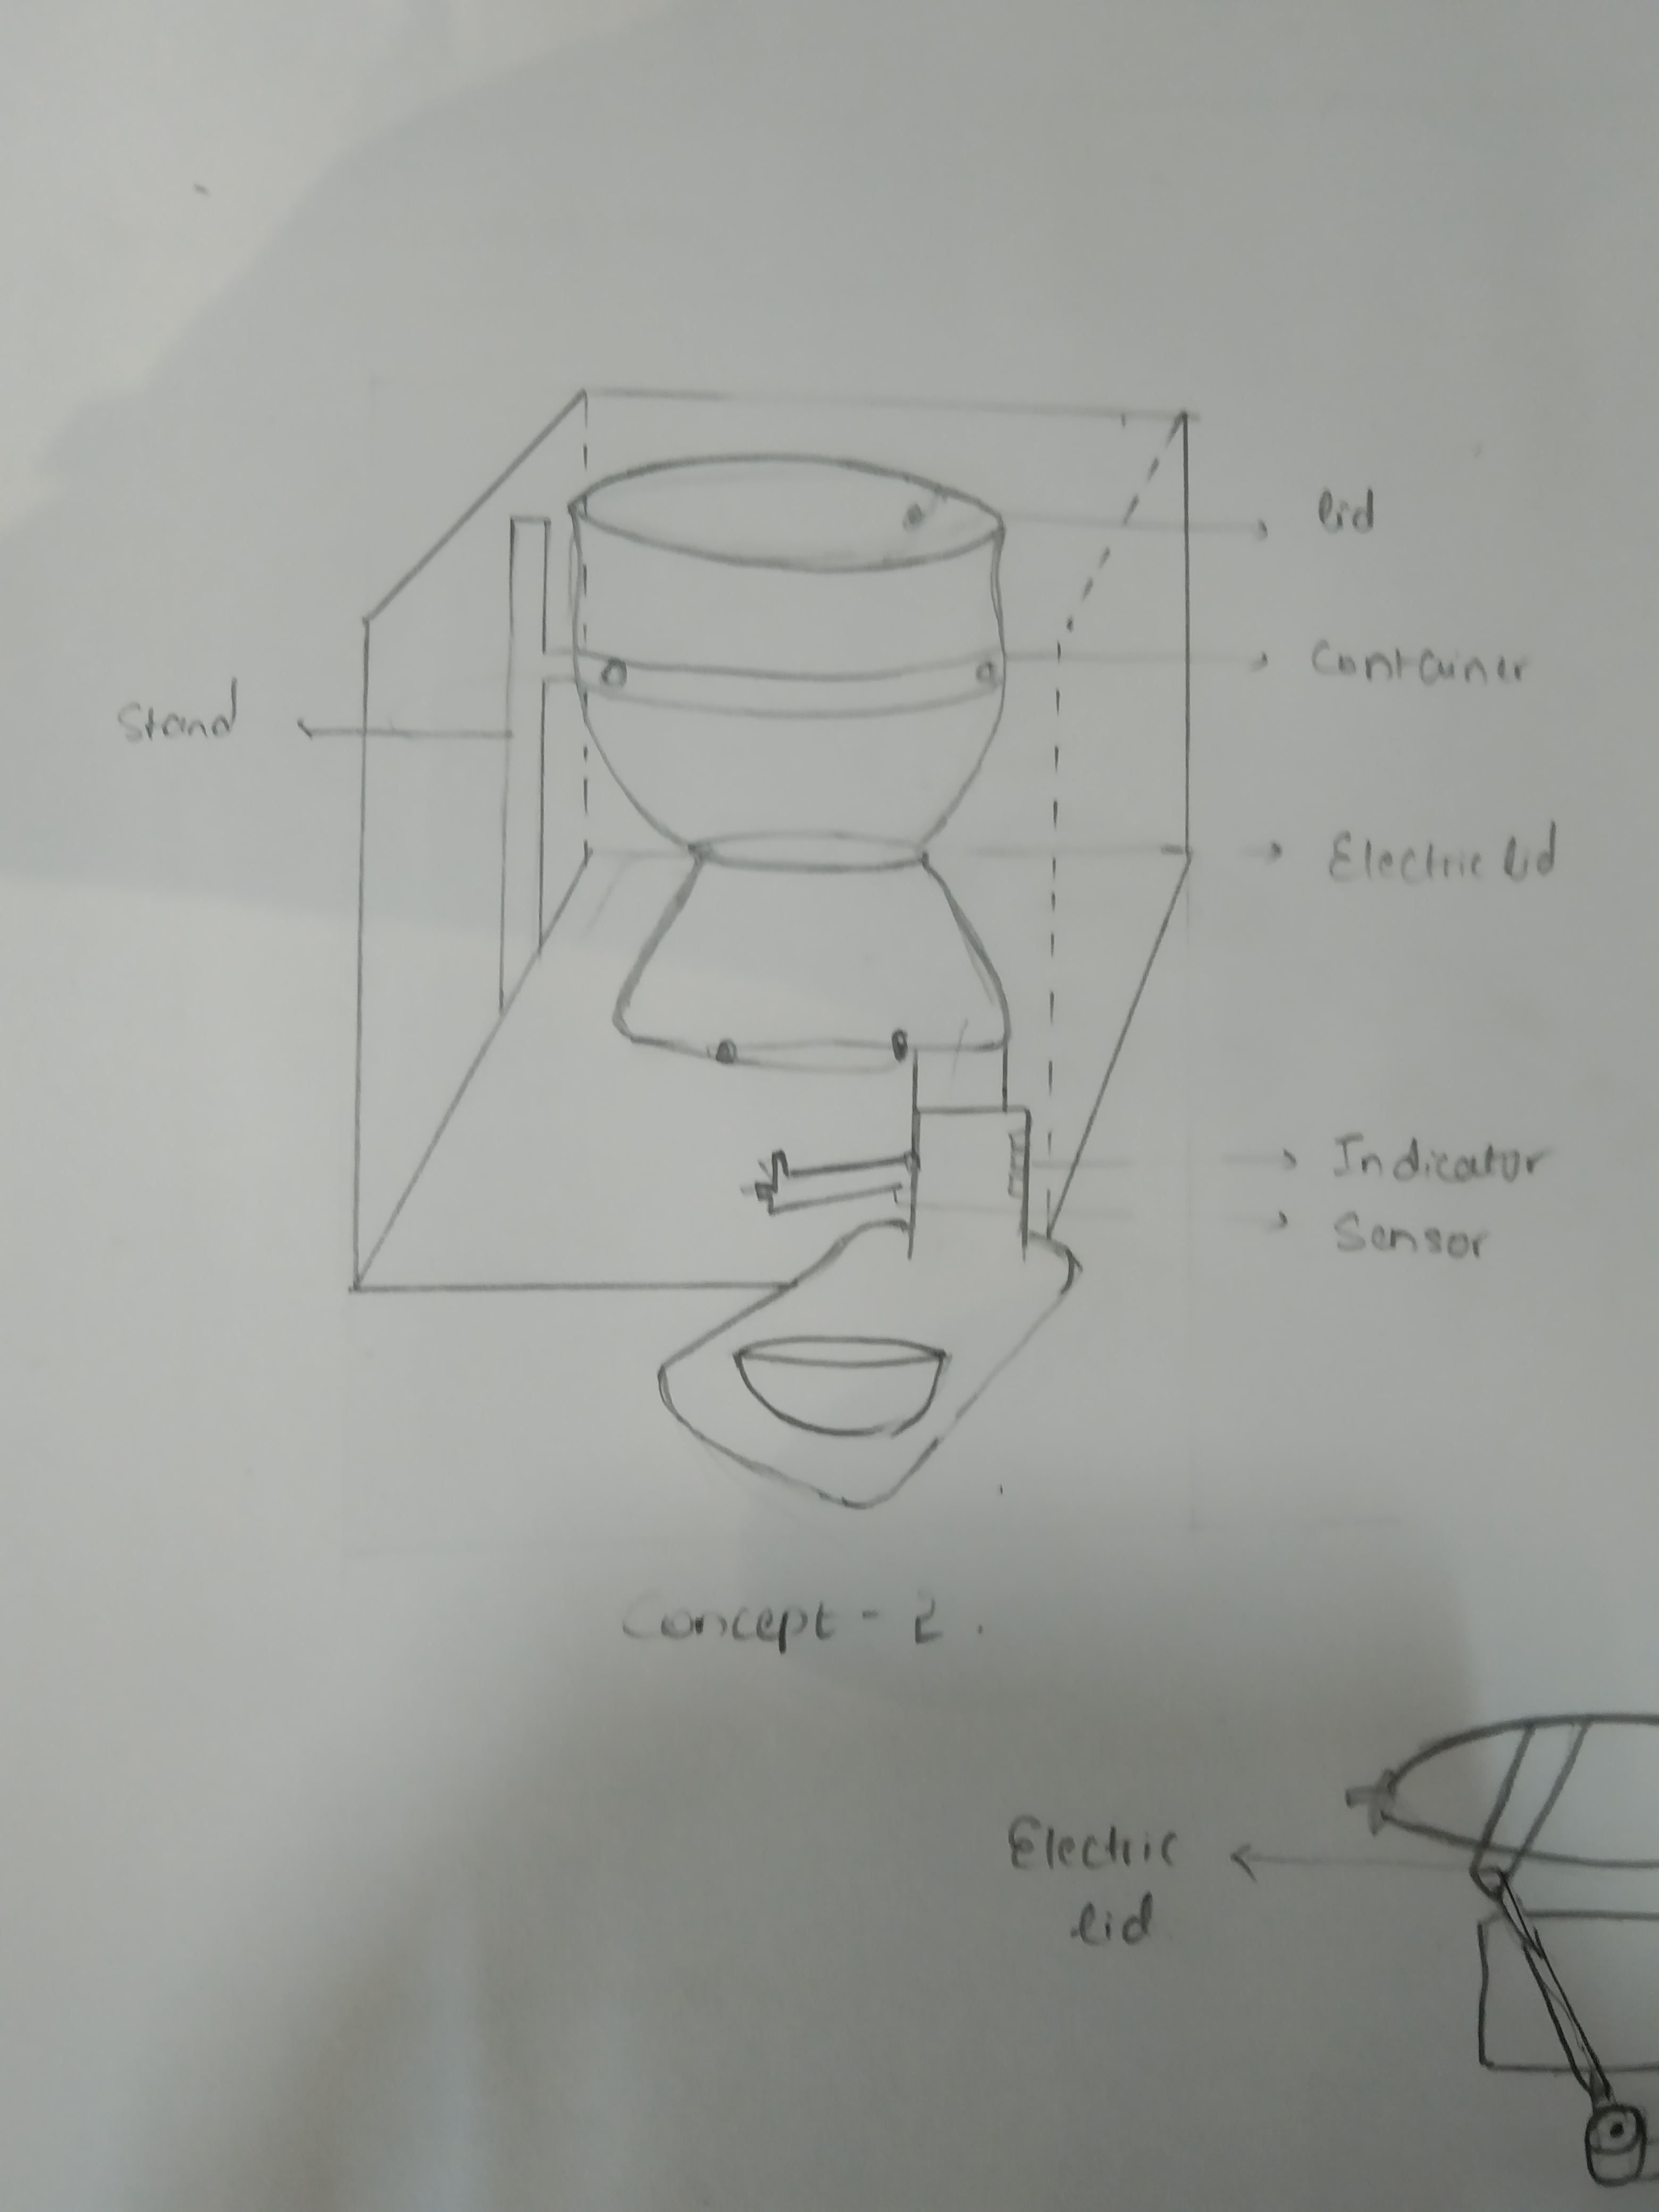 lid
Container
Stand
Electric lid
Indicator
Sensor
Concept - 2.
Electric
lid